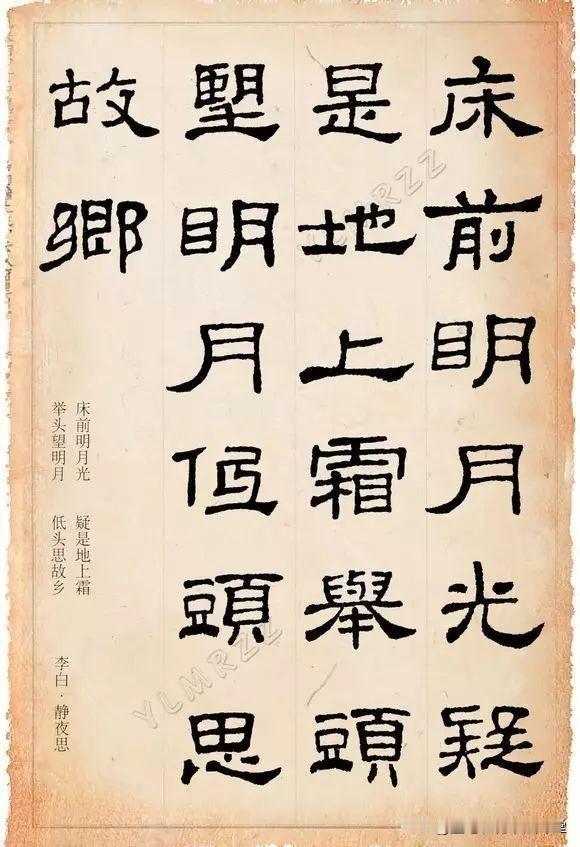 床前明月光疑
是地上霜舉頭
朢明月低頭思
故鄉
床前明月光　疑是地上霜
举头望明月　低头思故乡
李白·静夜思
YLMRZZ
YLMRZZ